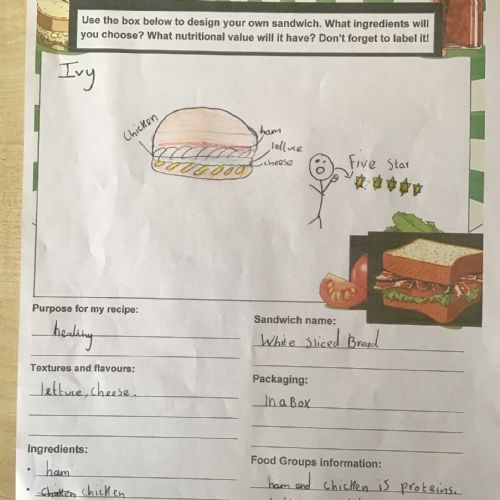 Use the box below to design your own sandwich. What ingredients will
you choose? What nutritional value will it have? Don't forget to label it!
Ivy
Chicken
ham
lettuce
cheese
Five Star
Purpose for my recipe:
healthy
Sandwich name:
White Sliced Bread
Textures and flavours:
lettuce, cheese.
Packaging:
In a Box
Ingredients:
• ham
• chicken
Food Groups information:
ham and chicken is proteins.